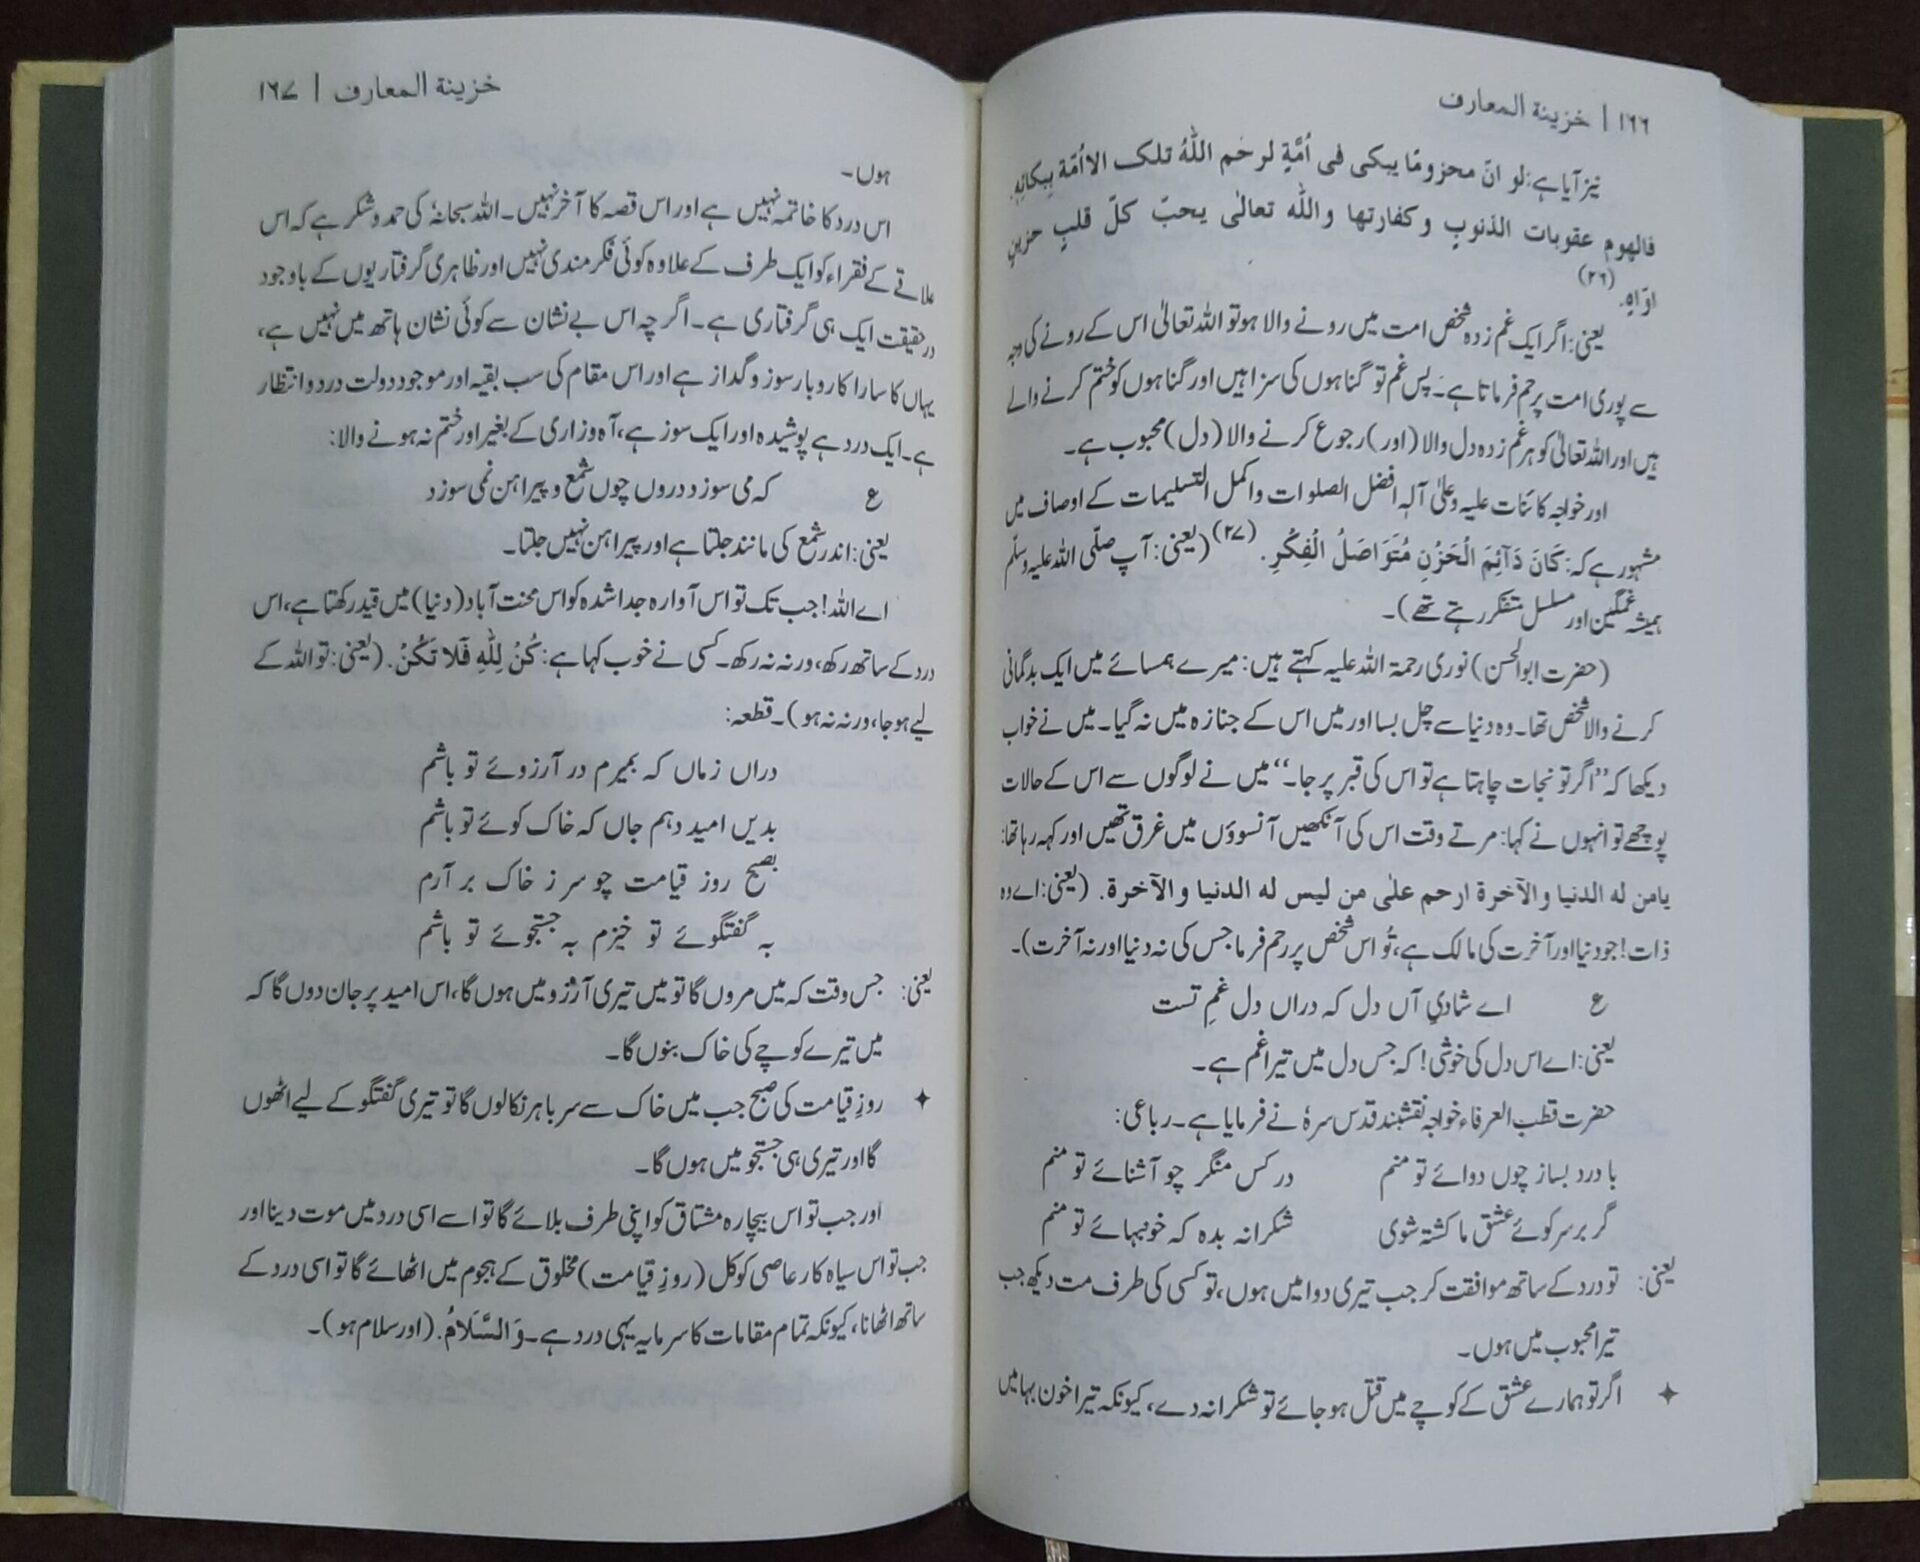 ۱۶۶ | خزینة المعارف
نیز آیا ہے: لو انّ محزومًا یبکی فی اُمَّةٍ لرحَم اللّٰهُ تلک الااُمّة بِبکائِهٖ.
فالهوم عقوبات الذنوبِ وکفارتها واللّٰه تعالٰی یحبّ کلّ قلبٍ حزینٍ
اوّاہٍ. (۲۶)
یعنی: اگر ایک غم زدہ شخص امت میں رونے والا ہو تو اللہ تعالیٰ اس کے رونے کی وجہ
سے پوری امت پر رحم فرماتا ہے۔ پس غم تو گناہوں کی سزا ہیں اور گناہوں کو ختم کرنے والے
ہیں اور اللہ تعالیٰ کو ہر غم زدہ دل والا (اور) رجوع کرنے والا (دل) محبوب ہے۔
اور خواجہ کائنات علیہ وعلیٰ آلہٖ افضل الصلوات واکمل التسلیمات کے اوصاف میں
مشہور ہے کہ: کَانَ دَآئِمَ الْحَزُنِ مُتَوَاصَلُ الْفِکُرِ. (۲۷) (یعنی: آپ صلّی اللہ علیہ وسلّم
ہمیشہ غمگین اور مسلسل متفکر رہتے تھے)۔
(حضرت ابوالحسن) نوری رحمۃ اللہ علیہ کہتے ہیں: میرے ہمسائے میں ایک بدگمانی
کرنے والا شخص تھا۔ وہ دنیا سے چل بسا اور میں اس کے جنازہ میں نہ گیا۔ میں نے خواب
دیکھا کہ ’’اگر تو نجات چاہتا ہے تو اس کی قبر پر جا۔‘‘ میں نے لوگوں سے اس کے حالات
پوچھے تو انہوں نے کہا: مرتے وقت اس کی آنکھیں آنسوؤں میں غرق تھیں اور کہہ رہا تھا:
یامن له الدنیا والآخرة ارحم علٰی من لیس له الدنیا والآخرة. (یعنی: اے وہ
ذات! جو دنیا اور آخرت کی مالک ہے، تُو اس شخص پر رحم فرما جس کی نہ دنیا اور نہ آخرت)۔
ع اے شادیِ آں دل کہ دراں دل غمِ تست
یعنی: اے اس دل کی خوشی! کہ جس دل میں تیرا غم ہے۔
حضرت قطب العرفاء خواجہ نقشبند قدس سرہٗ نے فرمایا ہے۔ رباعی:
با درد بساز چوں دوائے تو منم درکس منگر چو آشنائے تو منم
گر بر سر کوئے عشق ما کشتہ شوی شکرانہ بدہ کہ خونبہائے تو منم
یعنی: تو درد کے ساتھ موافقت کر جب تیری دوا میں ہوں، تو کسی کی طرف مت دیکھ جب
تیرا محبوب میں ہوں۔
✦ اگر تو ہمارے عشق کے کوچے میں قتل ہو جائے تو شکرانہ دے، کیونکہ تیرا خون بہا میں
خزینة المعارف | ۱۶۷
ہوں۔
اس درد کا خاتمہ نہیں ہے اور اس قصہ کا آخر نہیں۔ اللہ سبحانہٗ کی حمد و شکر ہے کہ اس
علاقے کے فقراء کو ایک طرف کے علاوہ کوئی فکر مندی نہیں اور ظاہری گرفتاریوں کے باوجود
درحقیقت ایک ہی گرفتاری ہے۔ اگرچہ اس بے نشان سے کوئی نشان ہاتھ میں نہیں ہے،
یہاں کا سارا کاروبار سوز و گداز ہے اور اس مقام کی سب بقیہ اور موجود دولت درد و انتظار
ہے۔ ایک درد ہے پوشیدہ اور ایک سوز ہے، آہ وزاری کے بغیر اور ختم نہ ہونے والا:
ع کہ می سوزد دروں چوں شمع و پیراہن نمی سوزد
یعنی: اندر شمع کی مانند جلتا ہے اور پیراہن نہیں جلتا۔
اے اللہ! جب تک تو اس آوارہ جدا شدہ کو اس محنت آباد (دنیا) میں قید رکھتا ہے، اس
درد کے ساتھ رکھ، ورنہ نہ رکھ۔ کسی نے خوب کہا ہے: کُنُ لِلّٰهِ فَلَا تَکُنُ. (یعنی: تو اللہ کے
لیے ہو جا، ورنہ نہ ہو)۔ قطعہ:
دراں زماں کہ بمیرم در آرزوئے تو باشم
بدیں امید دہم جاں کہ خاک کوئے تو باشم
بصبح روز قیامت چو سر ز خاک بر آرم
بہ گفتگوئے تو خیزم بہ جستجوئے تو باشم
یعنی: جس وقت کہ میں مروں گا تو میں تیری آرزو میں ہوں گا، اس امید پر جان دوں گا کہ
میں تیرے کوچے کی خاک بنوں گا۔
✦ روزِ قیامت کی صبح جب میں خاک سے سر باہر نکالوں گا تو تیری گفتگو کے لیے اٹھوں
گا اور تیری ہی جستجو میں ہوں گا۔
اور جب تو اس بیچارہ مشتاق کو اپنی طرف بلائے گا تو اسے اسی درد میں موت دینا اور
جب تو اس سیاہ کار عاصی کو کل (روزِ قیامت) مخلوق کے ہجوم میں اٹھائے گا تو اسی درد کے
ساتھ اٹھانا، کیونکہ تمام مقامات کا سرمایہ یہی درد ہے۔ وَالسَّلَامُ. (اور سلام ہو)۔